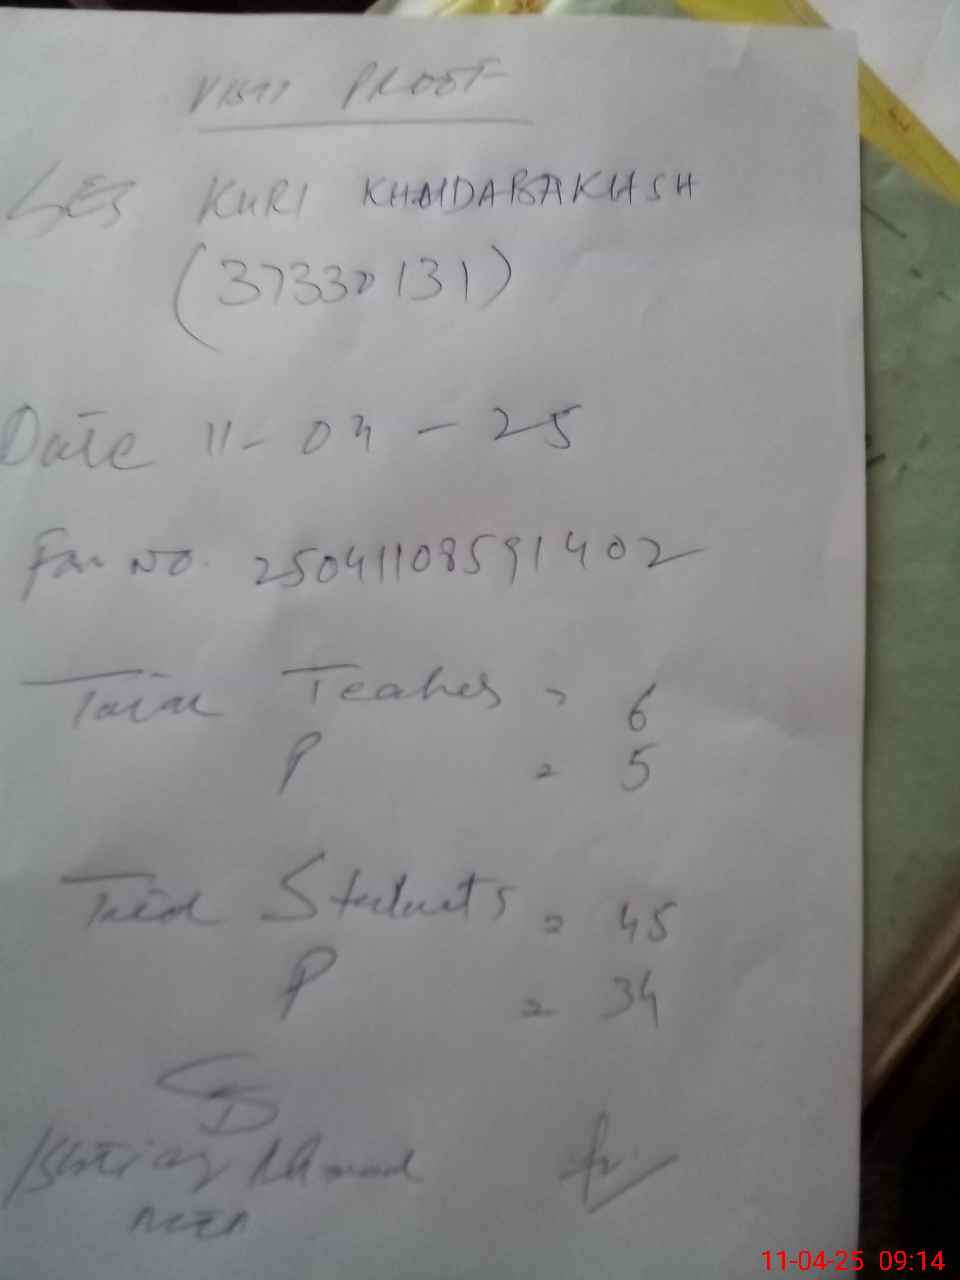 VISIT PROOF
GES KURI KHAUDABAKHSH
(37330131)
Date 11-04-25
Fam No. 25041108591402
Total Teahes = 6
P = 5
Total Students = 45
P = 34
Ishtiaq Ahmad
AEO
11-04-25 09:14